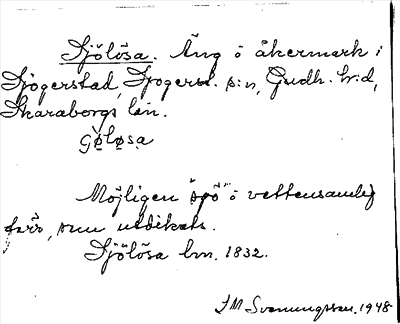 Sjölösa. Äng o åkermark i
Sjögerstad, Sjogerst. s:n, Gudh. h:d,
Skaraborgs län.
gø̀løsa
Möjligen "sjö" o vattensamling
förr, som utdikats.
Sjölösa lm. 1832.
J M Svenungsson. 1948